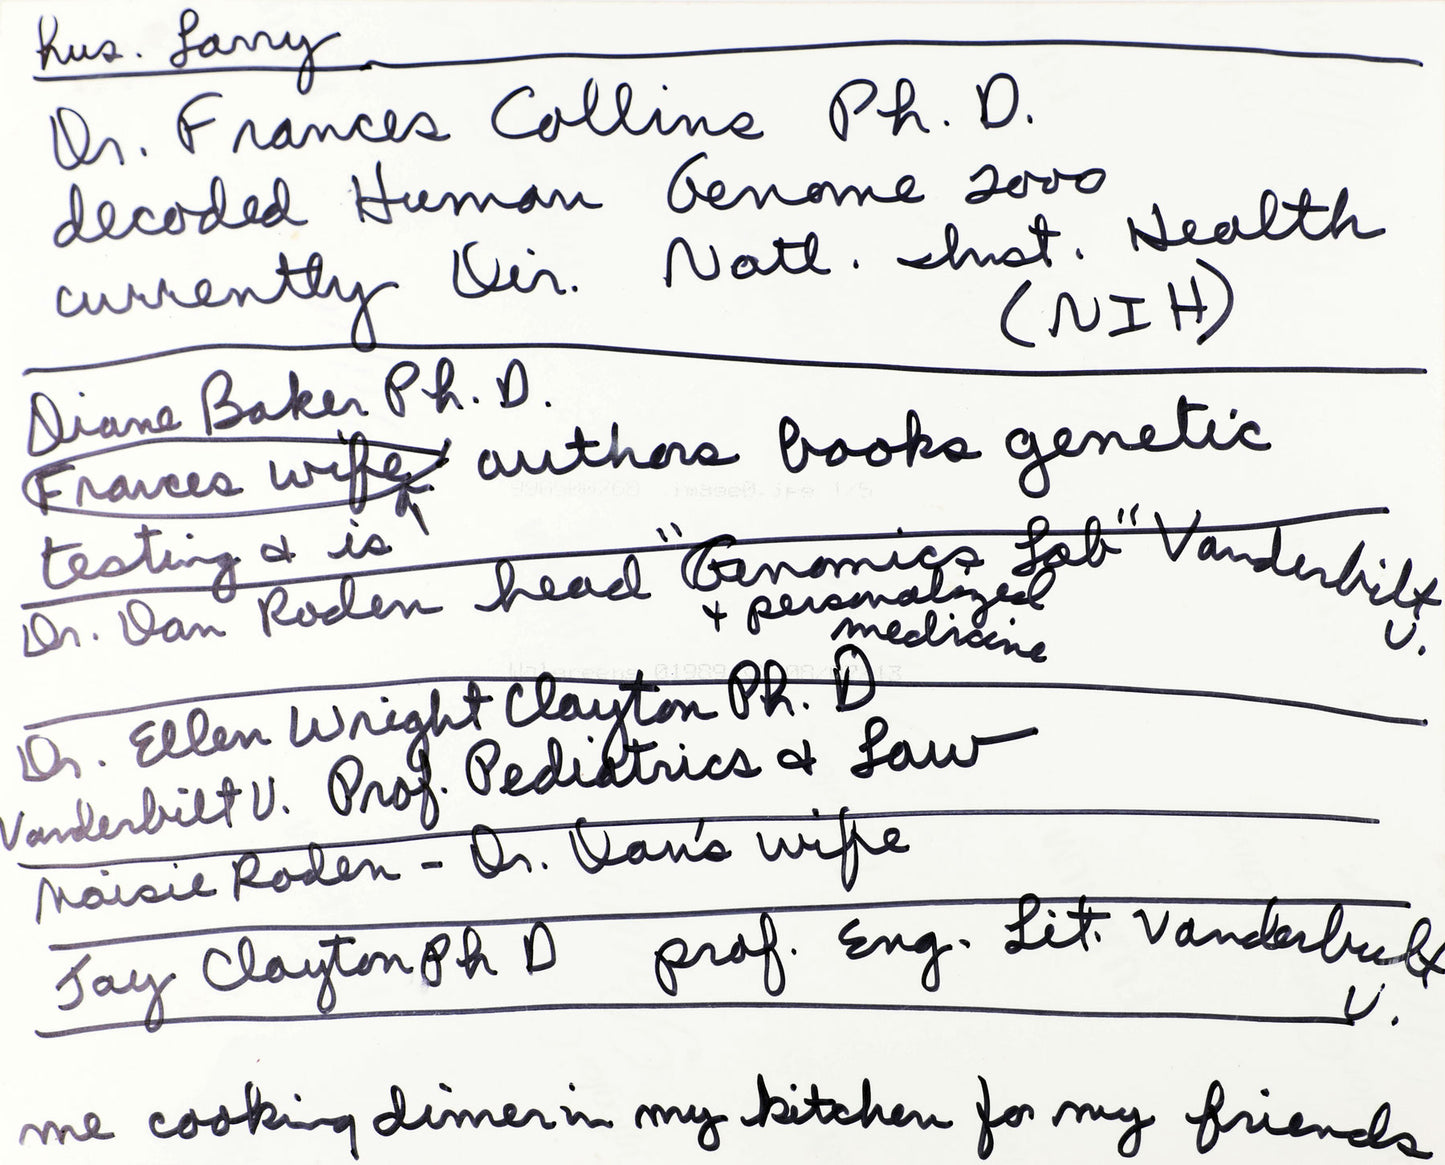 hus. Larry
Dr. Frances Collins Ph. D.
decoded Human Genome 2000
currently Dir. Natl. Inst. Health
(NIH)
Diane Baker Ph. D.
Frances wife authors books genetic
testing & is
Dr. Dan Roden head "Genomics Lab" Vanderbilt
+ personalized U.
medicine
Dr. Ellen Wright Clayton Ph. D
Vanderbilt U. Prof. Pediatrics & Law
Maisie Roden - Dr. Dan's wife
Jay Clayton Ph D prof. Eng. Lit. Vanderbilt
U.
me cooking dinner in my kitchen for my friends